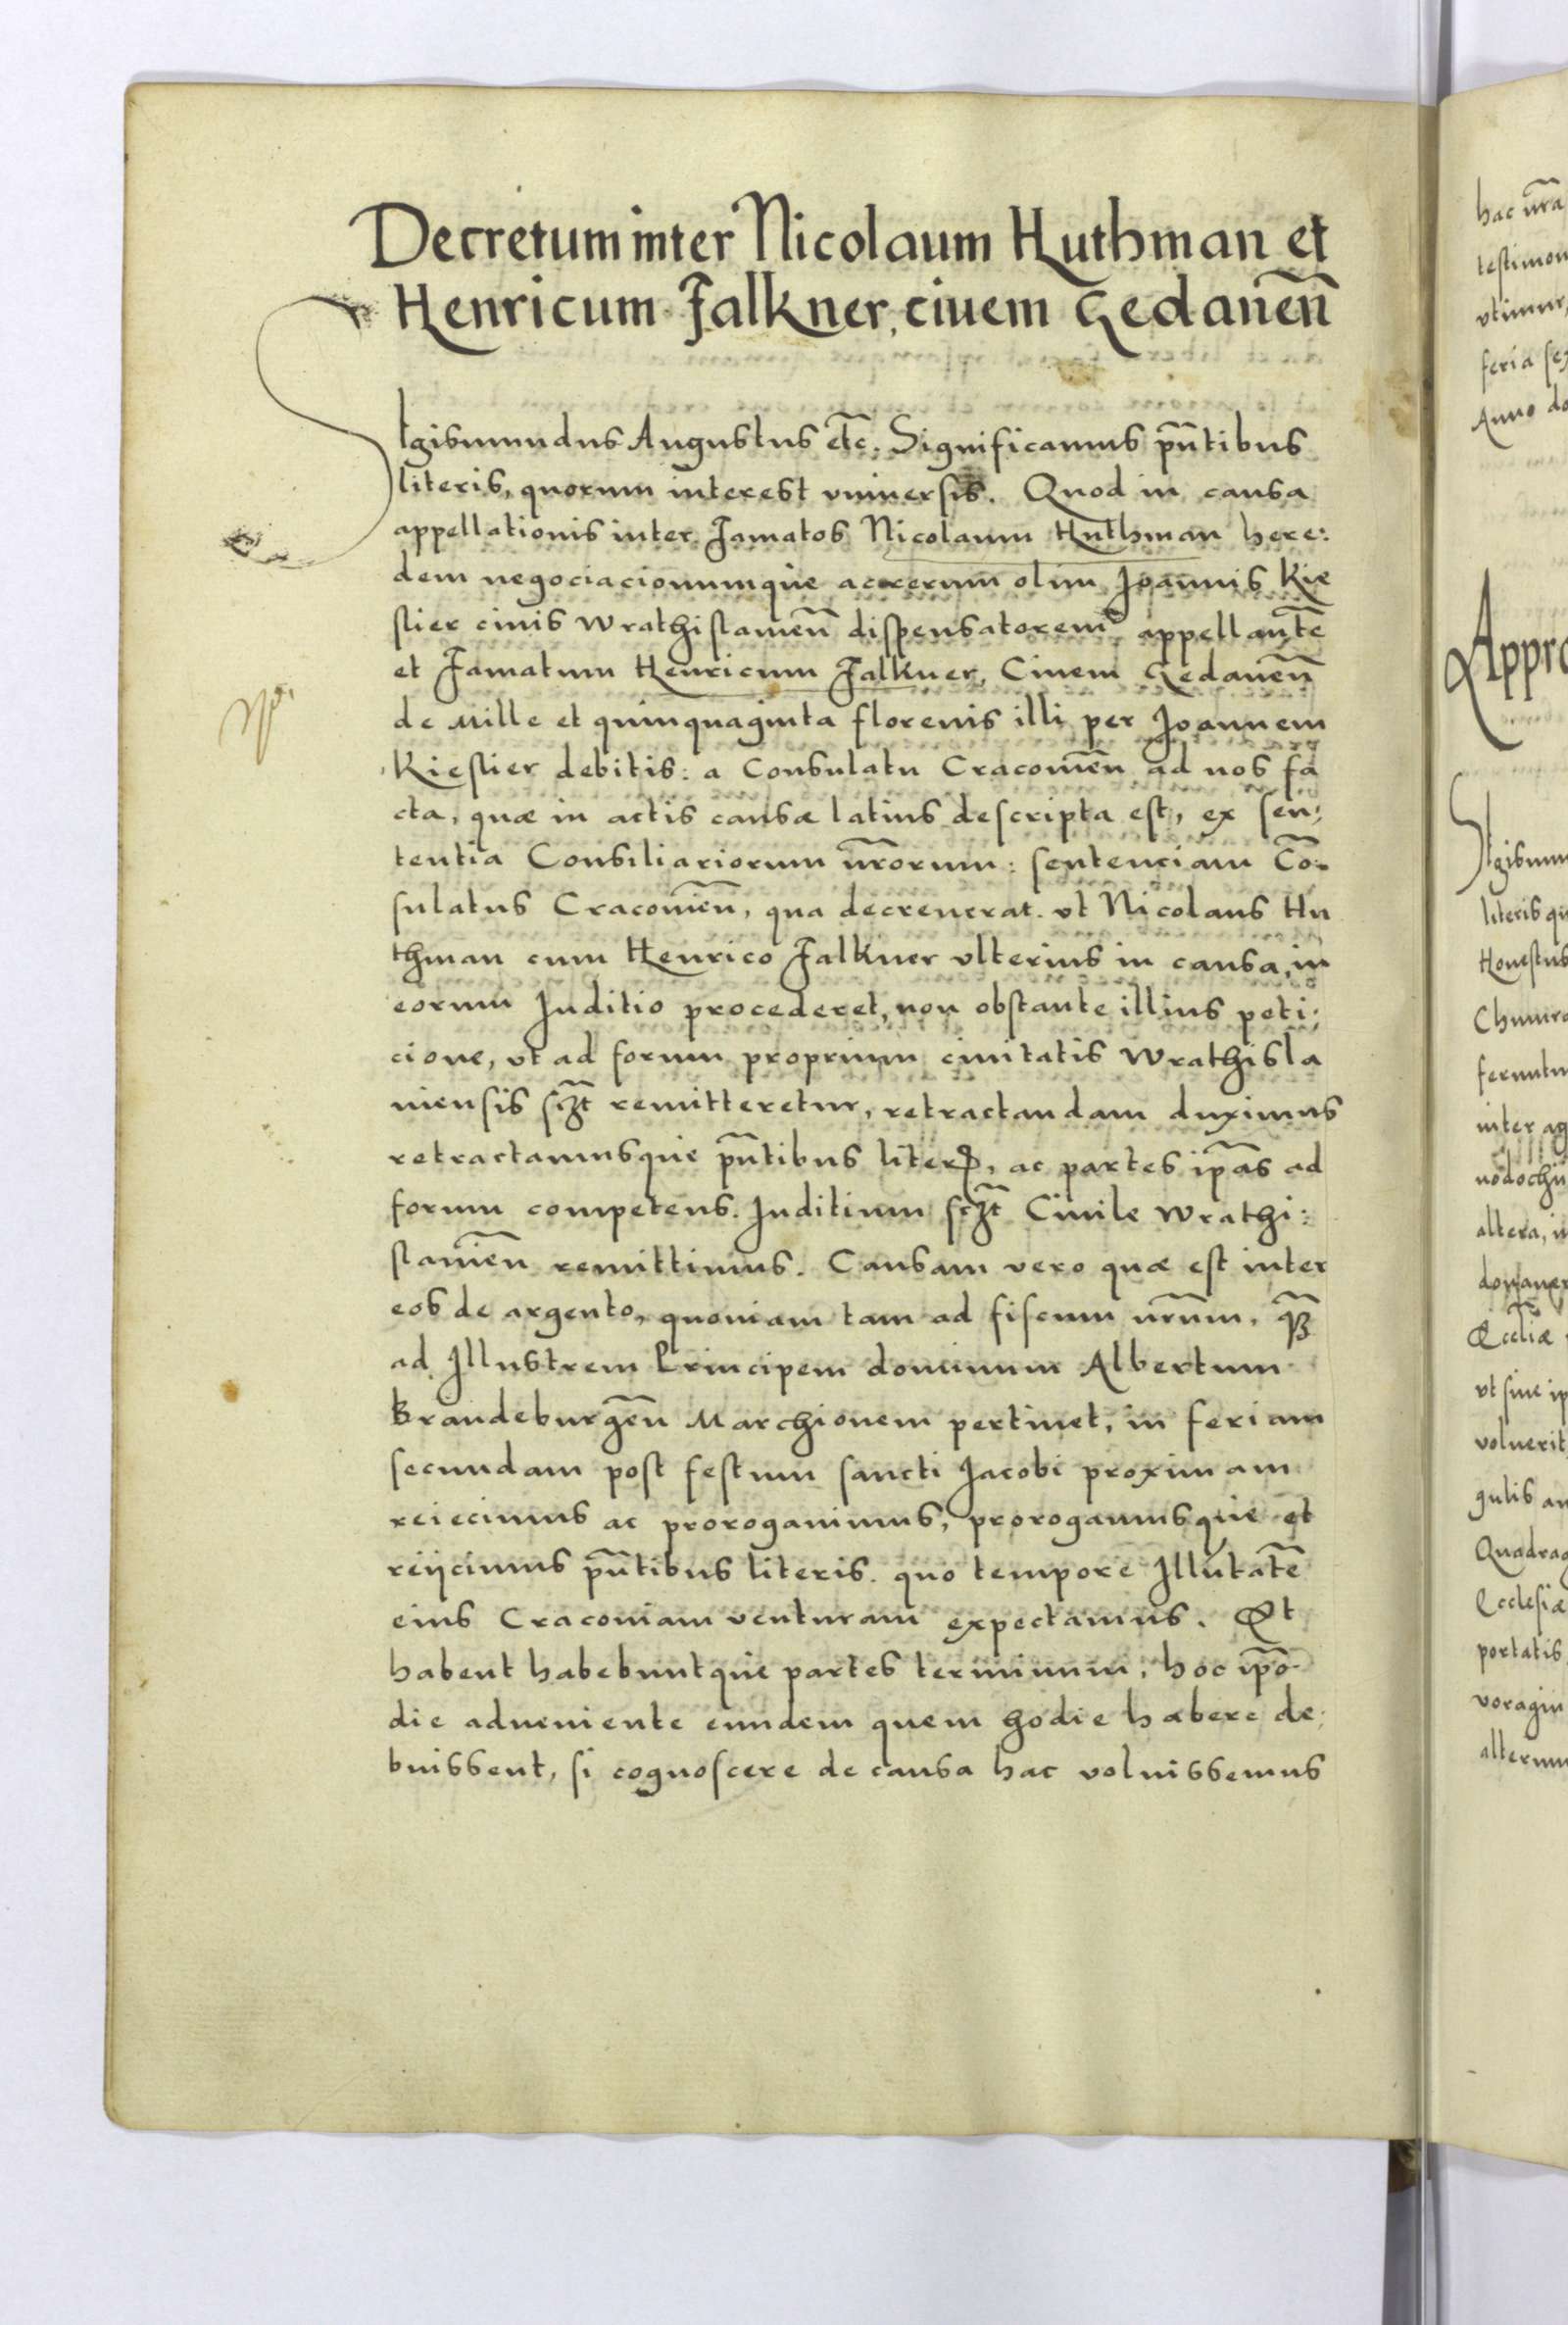 Decretum inter Nicolaum Huthman et
Henricum Falkner, ciuem Gedaneñ
Sigismundus Augustus etc̄. Significamus pñtibus
literis, quorum interest vniuersis. Quod in causa
appellationis inter Famatos Nicolaum Huthman here:
dem negociacionumque ac rerum olim Joannis Kie
stier ciuis Wrathislauieñ dispensatorem, appellantē
et Famatum Henricum Falkner, Ciuem Gedaneñ
de Mille et quinquaginta florenis illi per Joannem
Kiestier debitis: a Consulatu Cracouieñ ad nos fa
cta, quæ in actis causæ latius descripta est, ex sen:
tentia Consiliariorum nr̃orum: sentenciam Cõ:
sulatus Cracouieñ, qua decreuerat. vt Nicolaus Hu
thman cum Henrico Falkner vlterius in causa, in
eorum Juditio procederet, non obstante illius peti:
cione, vt ad forum proprium ciuitatis Wrathisla
uiensis sczt̃ remitteretur, retractandam duximus
retractamusque pñtibus literꝭ, ac partes ip̃as ad
forum competens. Juditium sczt̃ Ciuile Wrathi:
slauieñ remittimus. Causam vero quæ est inter
eos de argento, quoniam tam ad fiscum nr̃um, q̃ꝫ
ad Illustrem Principem dominum Albertum
Brandeburgeñ Marchionem pertinet, in feriam
secundam post festum sancti Jacobi proximam
reiecimus ac prorogauimus, prorogamusque et
reijcimus pñtibus literis. quo tempore Illutatē
eius Cracouiam venturam expectamus. Et
habent habebuntque partes terminum, hoc ip̃o
die adueniente eundem quem hodie habere de:
buissent, si cognoscere de causa hac voluissemus
hac nr̃a
vtimur,
feria sex
Anno do
Appro
Sigismun
literis qu
Honestus
inter ag
altera, in
Eccl̃iæ
voluerit
Ecclesiæ
portatis